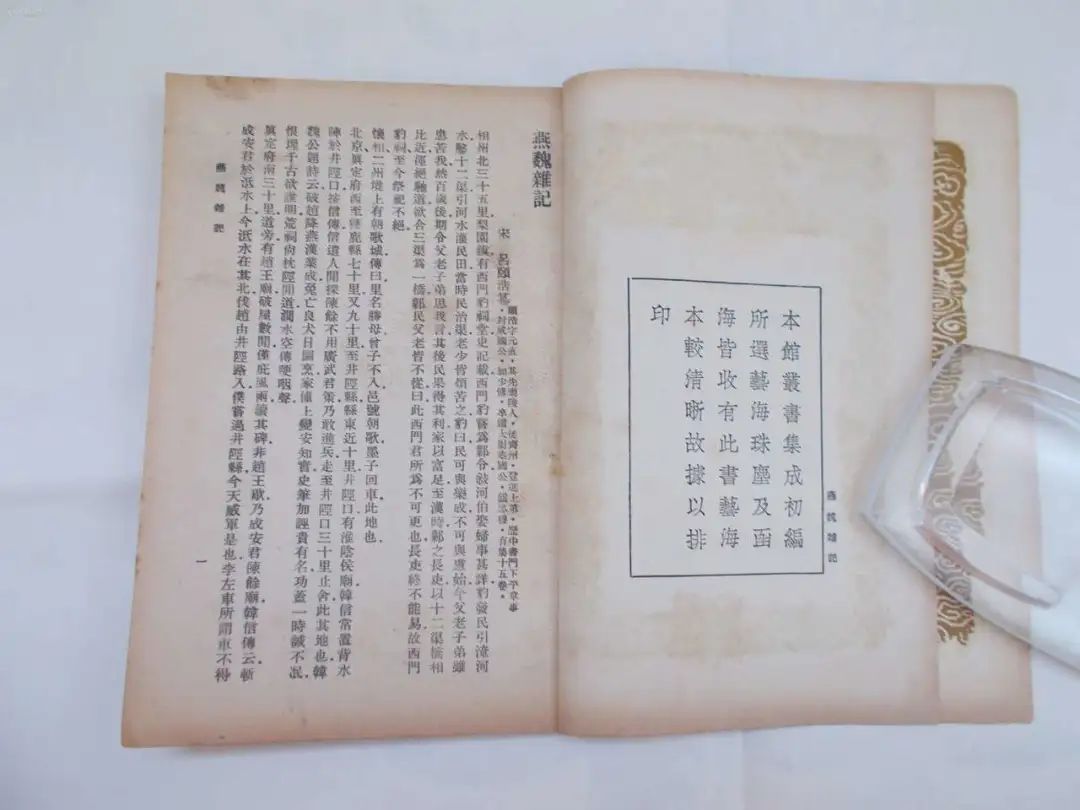 本館叢書集成初編
所選藝海珠塵及函
海皆收有此書藝海
本較清晰故據以排
印
燕魏雜記
燕魏雜記
宋 呂頤浩著
頤浩字元直，其先樂陵人，徙齊州，登進士第，歷中書門下平章事
封成國公，加少傅，卒贈太師秦國公，諡忠穆，有集十五卷。
相州北三十五里梨園鎮有西門豹祠堂史記載西門豹嘗爲鄴令波河伯娶婦事甚詳豹發民引漳河
水鑿十二渠引河水灌民田當時民治渠老少皆煩苦之豹曰民可與樂成不可與慮始今父老子弟雖
患苦我然百歲後期令父老子弟思我言其後民果得其利家以富足至漢時鄴之長吏以十二渠橋相
比近徑絕馳道欲合三渠爲一橋鄴民父老皆不從曰此西門君所爲不可更也長吏終不能易故西門
豹祠至今祭祀不絕
懷相二州境上有朝歌城傳曰里名勝母曾子不入邑號朝歌墨子回車此地也
北京眞定府西至獲鹿縣七十里又九十里至井陘縣縣東近十里井陘口有淮陰侯廟韓信常置背水
陣於井陘口按信傳信遣人間探陳餘不用廣武君策乃敢進兵走至井陘口三十里止舍此其地也韓
魏公題詩云破趙降燕漢業成兔亡良犬日圖烹家僮上變安知實史筆加誣貴有名功蓋一時誠不泯
恨埋千古欲誰明荒祠尙枕陘間道澗水空傳哽咽聲
眞定府南三十里道旁有趙王廟破屋數間僅庇風雨讀其碑非趙王歇乃成安君陳餘廟韓信傳云斬
成安君於泜水上今泜水在其北伐趙由井陘路入僕嘗過井陘縣今天威軍是也李左車所謂車不得
燕魏雜記
一